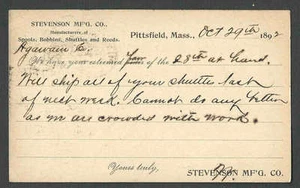 STEVENSON M'F'G. CO.
Manufacturers of
Spools, Bobbins, Shuttles and Reeds.
Pittsfield, Mass., Oct 29th 1892
Agawam Co.
We have your esteemed favor of the 28th at hand.
Will ship all of your shuttles last
of next week. Cannot do any better
as we are crowded with work.
Yours truly,
STEVENSON M'F'G. CO.